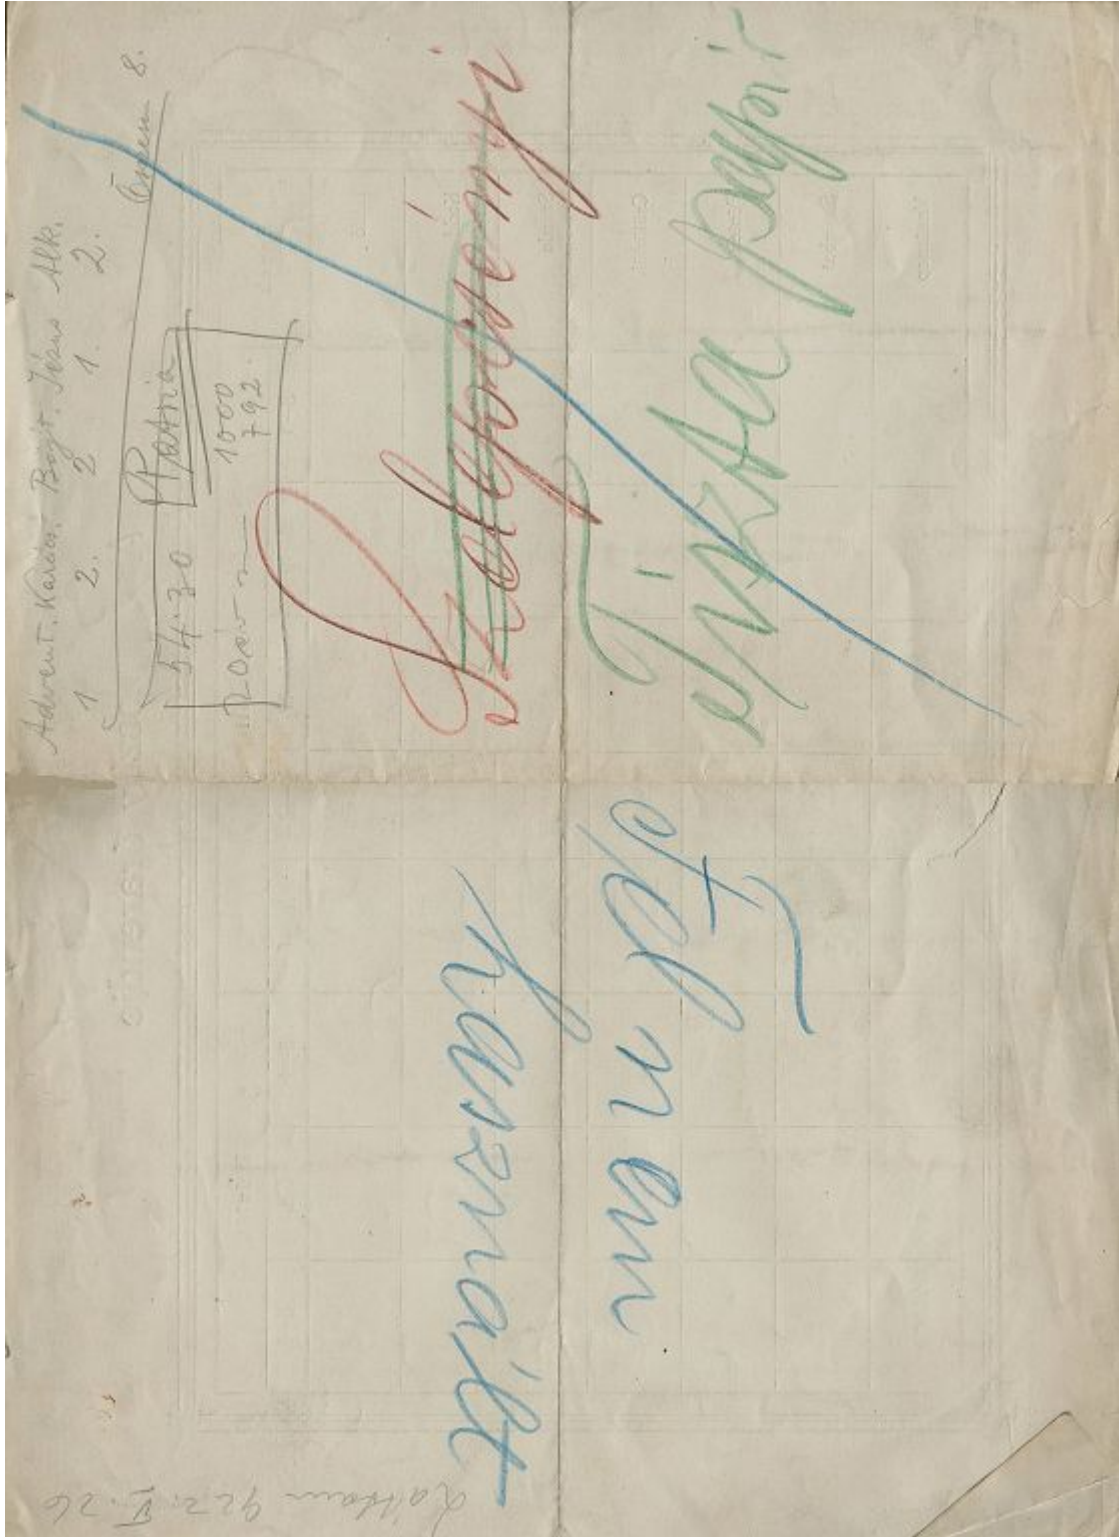 Advent. Karács. Bőjt. Jézus Alk.
1 2. 2 1 2.
Összesen 8.
54·30 Patria
1000
792
Szaleposényi
Tiszta papir
Fel nem
használt
Láttam 922. V. 26